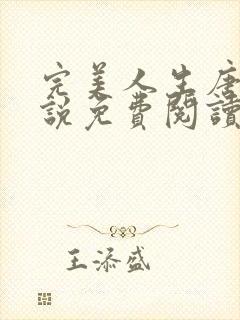 完美人生唐
说免費閱讀
王添盛